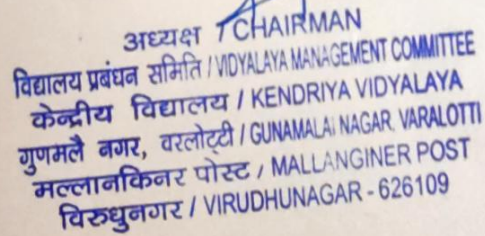 अध्यक्ष / CHAIRMAN
विद्यालय प्रबंधन समिति / VIDYALAYA MANAGEMENT COMMITTEE
केन्द्रीय विद्यालय / KENDRIYA VIDYALAYA
गुणमलै नगर, वरलोट्टी / GUNAMALAI NAGAR, VARALOTTI
मल्लानकिनर पोस्ट / MALLANGINER POST
विरुधुनगर / VIRUDHUNAGAR - 626109